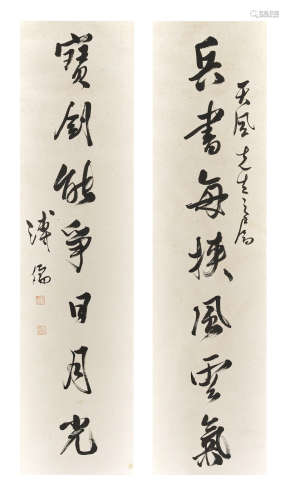 兵書每挾風雲氣
天風先生之屬
寶劍能爭日月光
溥儒